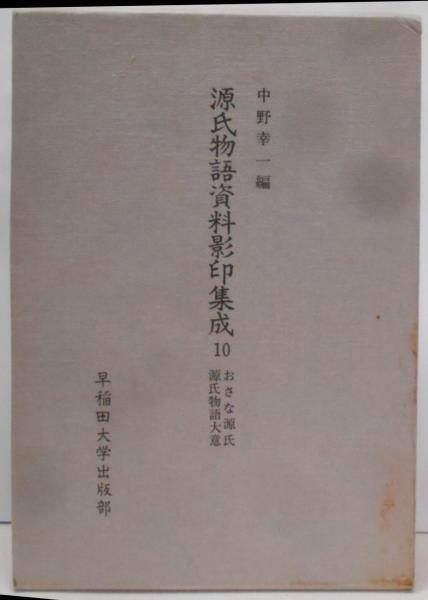 中野幸一編
源氏物語資料影印集成10
おさな源氏
源氏物語大意
早稲田大学出版部